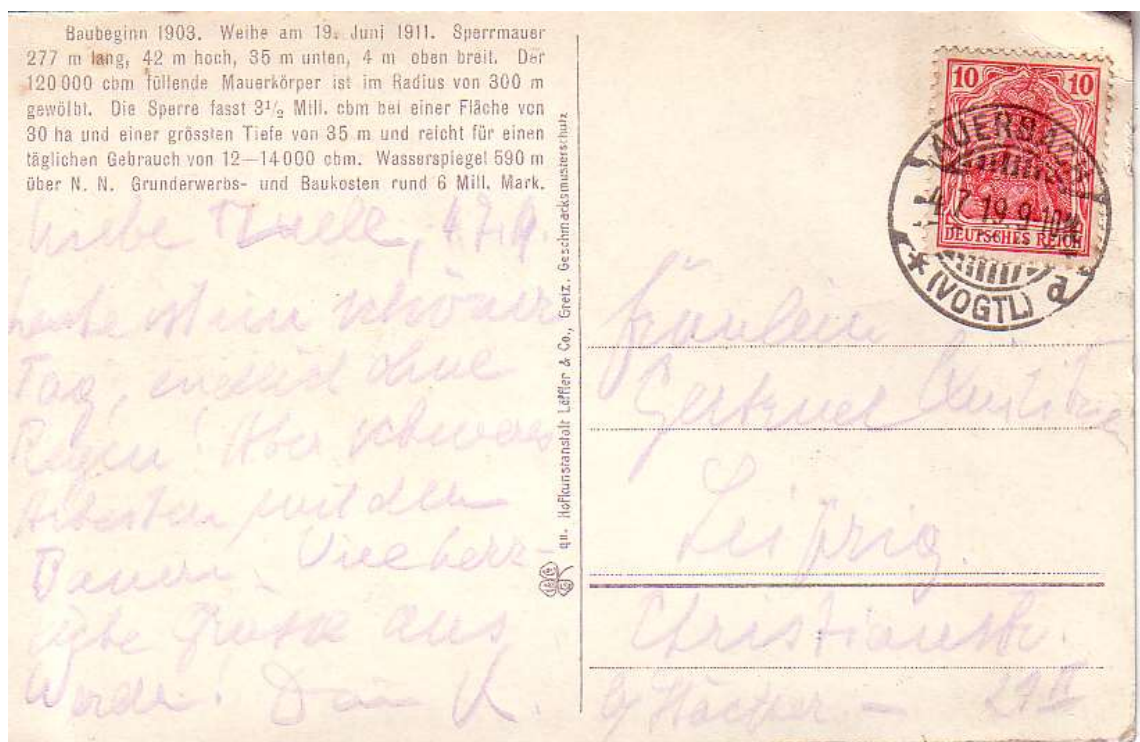 Baubeginn 1903. Weihe am 19. Juni 1911. Sperrmauer
277 m lang, 42 m hoch, 35 m unten, 4 m oben breit. Der
120 000 cbm füllende Mauerkörper ist im Radius von 300 m
gewölbt. Die Sperre fasst 3½ Mill. cbm bei einer Fläche von
30 ha und einer grössten Tiefe von 35 m und reicht für einen
täglichen Gebrauch von 12—14 000 cbm. Wasserspiegel 590 m
über N. N. Grunderwerbs- und Baukosten rund 6 Mill. Mark.
Liebe
heute ist ein schöner
Tag, endlich ohne
Regen! Aber schweres
Arbeiten mit den
Bauern. Viele herz-
liche Grüsse aus
Dein K.
qu. Hofkunstanstalt Löffler & Co., Greiz. Geschmacksmusterschutz
10 10
DEUTSCHES REICH
AUERBACH
4.7.19.9-10
* (VOGTL) a
Fräulein
Gertrud
Leipzig.
Christianstr.